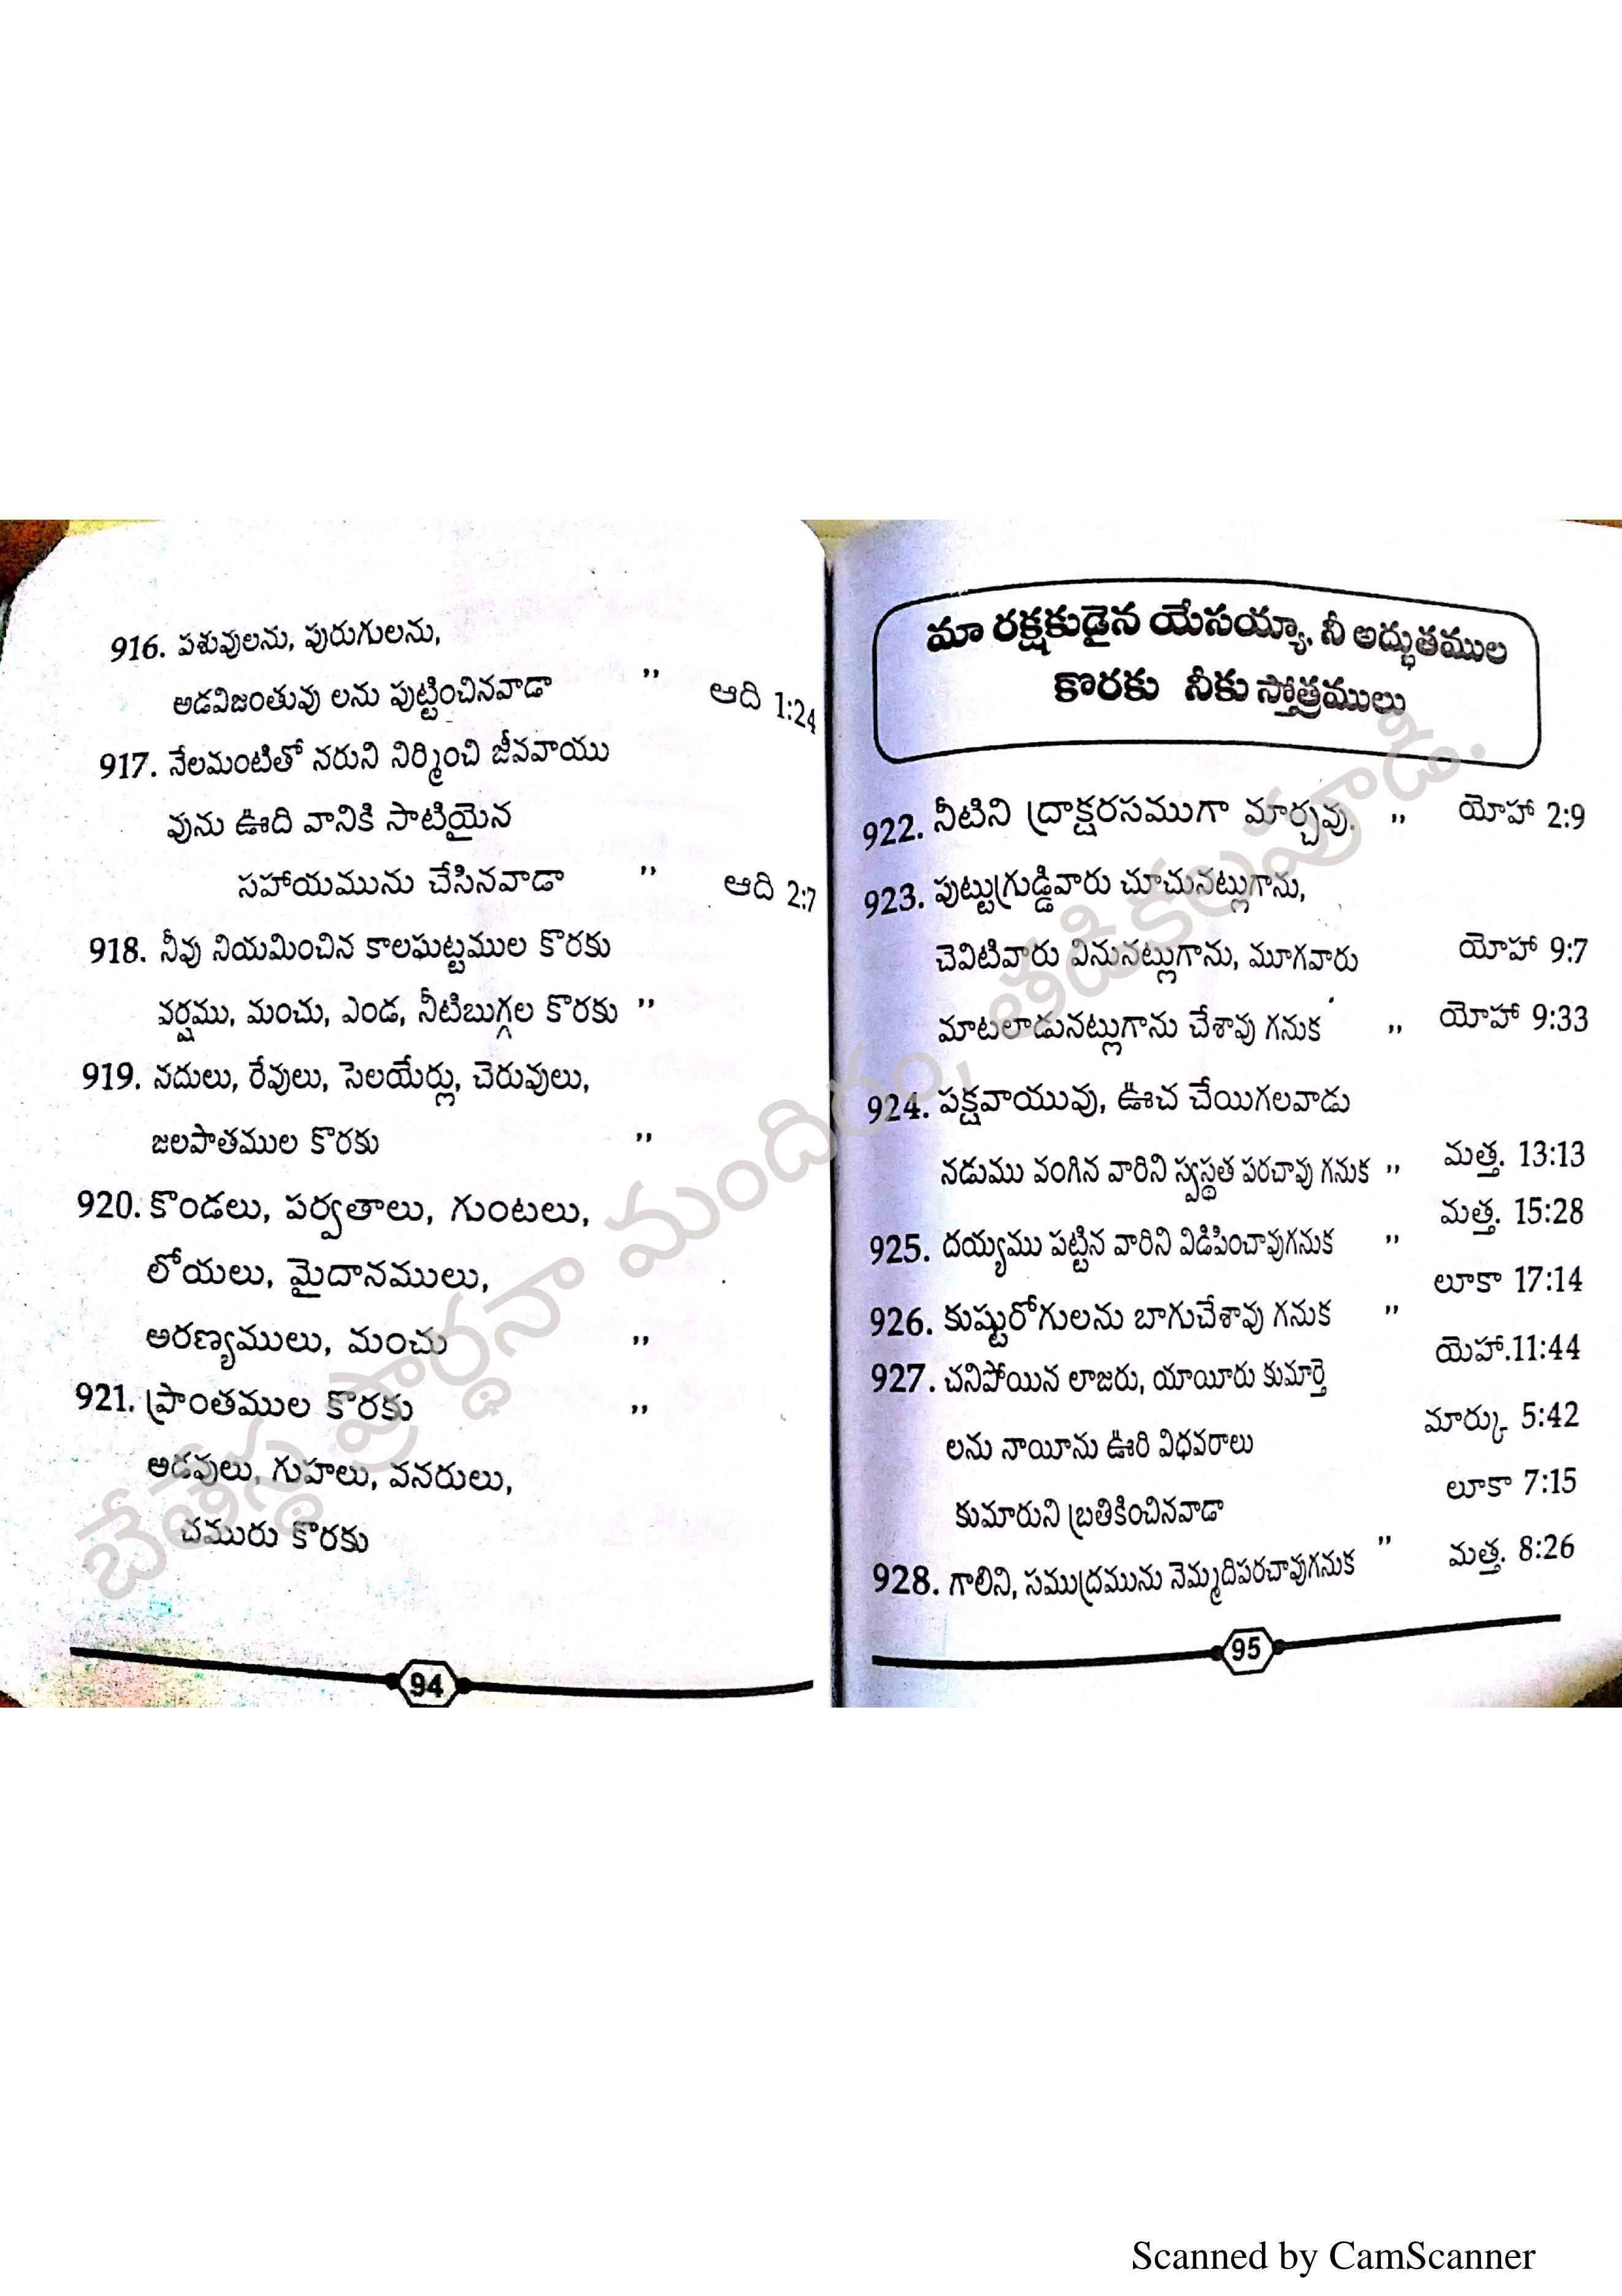 916. పశువులను, పురుగులను,
అడవిజంతువు లను పుట్టించినవాడా ,, ఆది 1:24
917. నేలమంటితో నరుని నిర్మించి జీవవాయు
వును ఊది వానికి సాటియైన
సహాయమును చేసినవాడా ,, ఆది 2:7
918. నీవు నియమించిన కాలఘట్టముల కొరకు
వర్షము, మంచు, ఎండ, నీటిబుగ్గల కొరకు ,,
919. నదులు, రేవులు, సెలయేర్లు, చెరువులు,
జలపాతముల కొరకు ,,
920. కొండలు, పర్వతాలు, గుంటలు,
లోయలు, మైదానములు,
అరణ్యములు, మంచు ,,
921. ప్రాంతముల కొరకు ,,
అడవులు, గుహలు, వనరులు,
చమురు కొరకు
94
మా రక్షకుడైన యేసయ్యా, నీ అద్భుతముల
కొరకు నీకు స్తోత్రములు
922. నీటిని ద్రాక్షరసముగా మార్చవు. ,, యోహా 2:9
923. పుట్టుగ్రుడ్డివారు చూచునట్లుగాను,
చెవిటివారు వినునట్లుగాను, మూగవారు యోహా 9:7
మాటలాడునట్లుగాను చేశావు గనుక ,, యోహా 9:33
924. పక్షవాయువు, ఊచ చేయిగలవాడు
నడుము వంగిన వారిని స్వస్థత పరచావు గనుక ,, మత్త. 13:13
మత్త. 15:28
925. దయ్యము పట్టిన వారిని విడిపించావుగనుక ,,
లూకా 17:14
926. కుష్టురోగులను బాగుచేశావు గనుక ,,
యెహా.11:44
927. చనిపోయిన లాజరు, యాయీరు కుమార్తె
మార్కు 5:42
లను నాయీను ఊరి విధవరాలు
లూకా 7:15
కుమారుని బ్రతికించినవాడా
928. గాలిని, సముద్రమును నెమ్మదిపరచావుగనుక ,, మత్త. 8:26
95
బేతెస్థ ప్రార్థనా మందిరం, తడికలపూడి.
Scanned by CamScanner